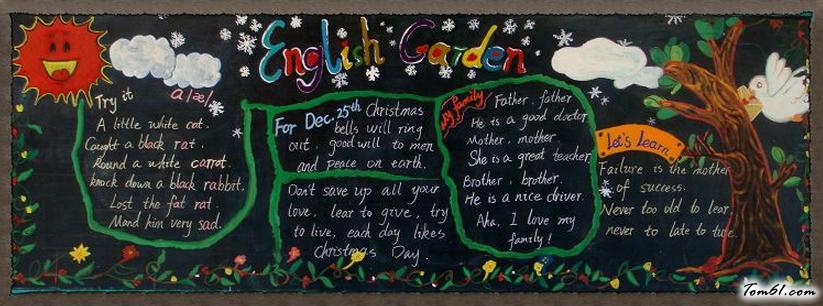 English Garden
Try it
a/æ/
A little white cat.
Caught a black rat.
Round a white carrot.
knock down a black rabbit.
Lost the fat rat.
Mand him very sad.
For Dec. 25th Christmas
bells will ring
out. good will to men
and peace on earth.
Don't save up all your
love, lear to give, try
to live, each day likes
Christmas Day.
My family
Father, father
He is a good doctor
Mother, mother.
She is a great teacher
Brother, brother.
He is a nice driver.
Aha, I love my
family!
Let's Learn
Failure is the mother
of success.
Never too old to lear,
never to late to ture.
Tom61.com